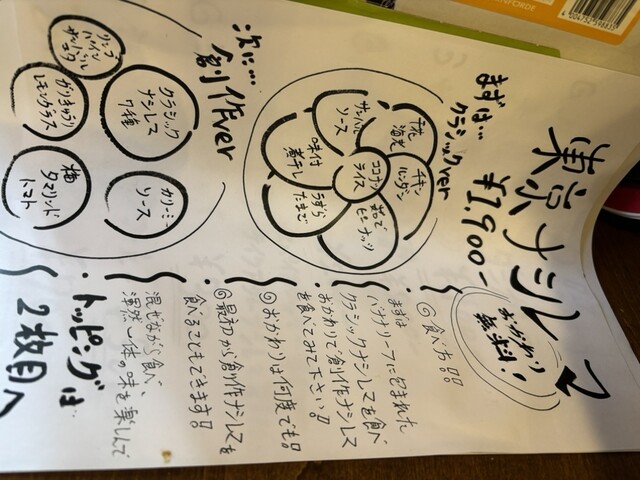 東京ナシレマ
¥1,900-
おかわり
無料!
まずは…
クラシックver
干花
海老
チキン
ルンダン
ゆで
ピーナッツ
うずら
たまご
味付
煮干し
サンバル
ソース
ココナッツ
ライス
次に…
創作ver
クラシック
ナシレマ
7種
カリーミー
ソース
梅
タマリンド
トマト
かっきゅうり
レモングラス
リンゴ
パイン
サンバル
◎食べ方!!
まずは
バナナリーフに包まれた
クラシックナシレマを食べ
おかわりで創作ナシレマ
を食べてみて下さい!!
◎おかわりは何度でも!!
◎最初から創作ナシレマを
食べることもできます!!
混ぜながら食べ、
渾然一体の味を楽しんで
・トッピングは
2枚目へ